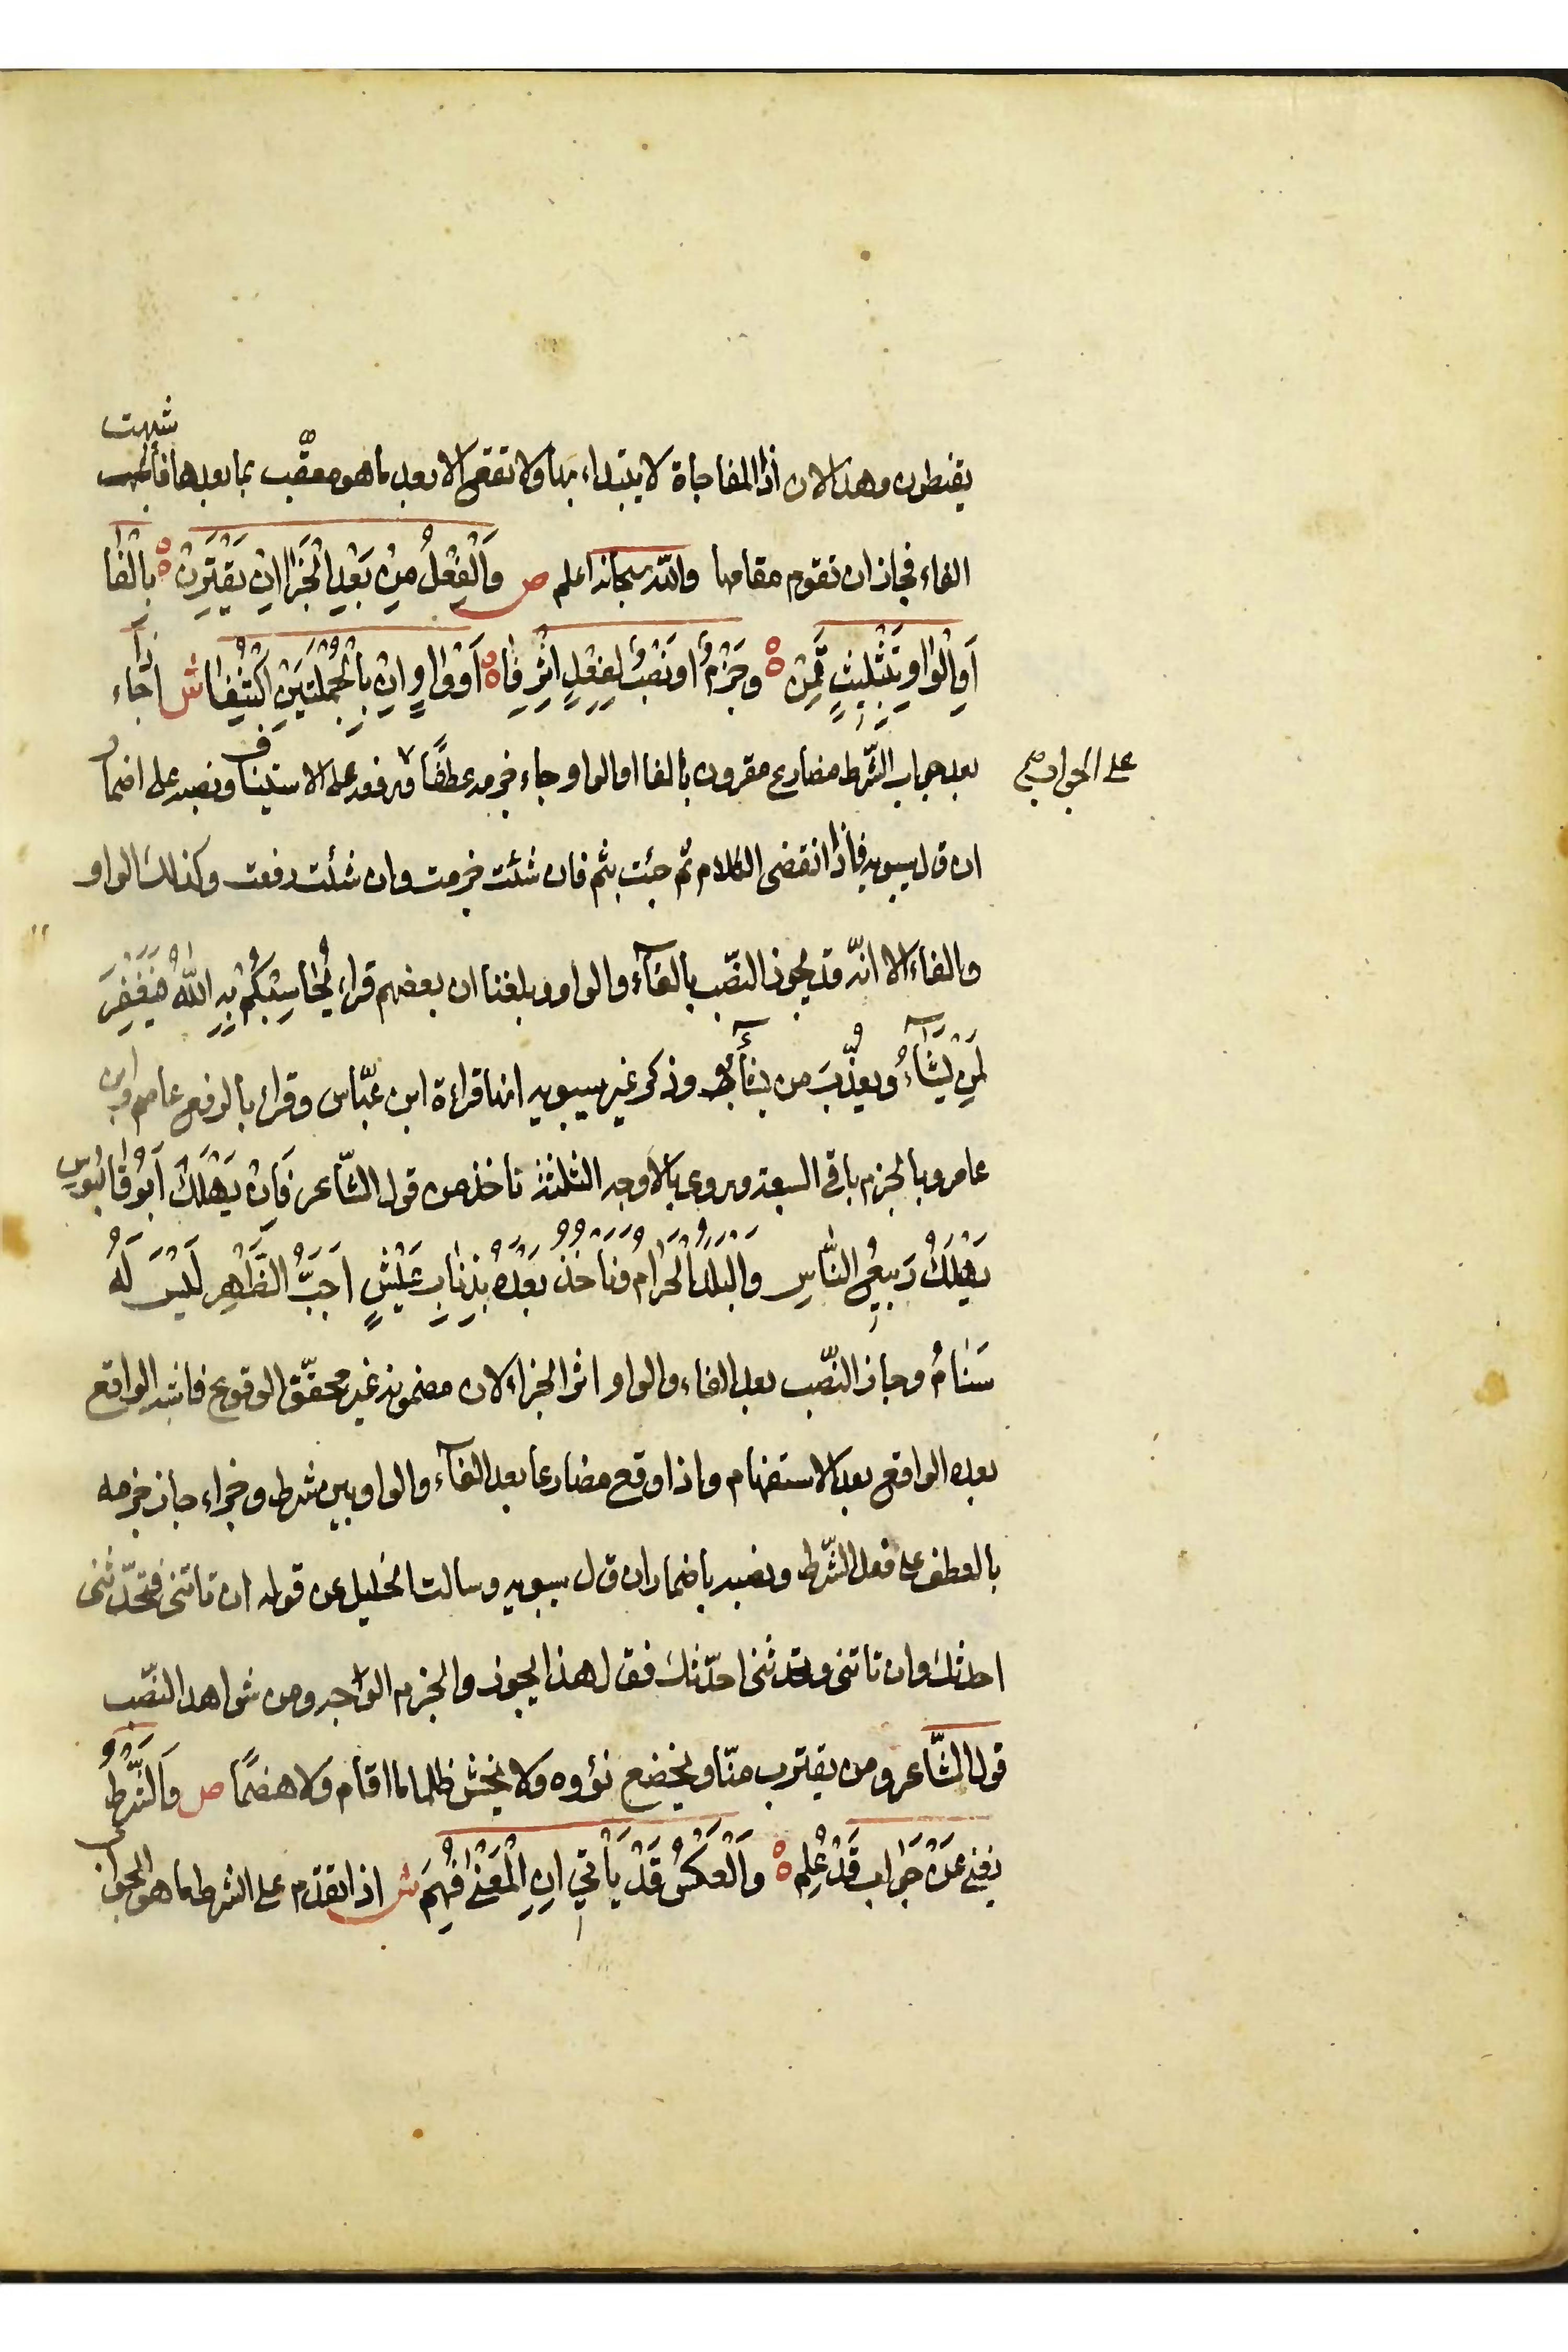 يقنطون وهذا لان اذا المفاجاة لا يبتداء بها ولا تقع الا بعد ما هو معقّب بما بعدها فاشبهت
الفاء فجاز ان تقوم مقامها والله سبحانه اعلم ص وَالْفِعْلُ مِنْ بَعْدِ الْجَزَا اِنْ يَقْتَرِنْ ه بِالْفَا
اَوِ الْوَاوِ بِتَثْلِيثٍ قَمِنْ ه وجَزْمٌ او نَصْبٌ لِفِعْلٍ اِثْرَ فَاه اَوْ وَاوٍ اِنْ بِالْجُمْلَتَيْنِ اكْتُنِفَا ش اذا جاء
على الجواب صح
بعد جواب الشّرط مضارع مقرون بالفا او الواو جاء جزمه عطفًا ورفعه على الاستيناف ونصبه على اضمار
ان قال سيبويه فاذا انقضى الكلام ثم جئت بثم فان شئت جزمت وان شئت رفعت وكذلك الواو
والفاء الا انّه قد يجوز النّصب بالفآء والواو وبلغنا ان بعضهم قراء يُحَاسِبْكُمْ بِهِ اللهُ فَيَغْفِرَ
لِمَنْ يَشَآءُ ويعذّبَ من يشآء وذكر غير سيبويه انها قراءة ابن عبّاس وقراء بالرفع عاصم وابن
عامر وبالجزم باقي السبعة وروي بالاوجه الثلثة ناخذ من قول الشّاعر فَاِنْ يَهْلَكْ اَبُو قَابُوسَ
يَهْلَكْ رَبِيعُ النَّاسِ وَالْبَلَدُ الْحَرَامُ وَنَاخذ بَعْدَهُ بِذِنَابِ عَيْشٍ اَجَبَّ الظَّهْرِ لَيْسَ لَهُ
سَنَامُ وجاز النّصب بعد الفاء والواو اثر الجزاء لان مضمونه غير محقّق الوقوع فاشبه الواقع
بعده الواقع بعد الاستفهام واذا وقع مضارعا بعد الفآء والواو بين شرط وجزاء جاز جزمه
بالعطف على فعل الشّرط ونصبه باضمار ان قال سيبويه وسالت الخليل عن قوله ان تاتني فتحدّثني
احدثك وان تاتني وتحدثني احدّثك فقال هذا يجوز والجزم الواجه ومن شواهد النّصب
قول الشّاعر ومن يقترب منّا ويخضع نؤوه ولا يخش ظلما ما اقام ولا هضمًا ص وَالشَّرْطُ
يغني عَنْ جَوَابٍ قَدْ عُلِمْ ه وَالْعَكْسُ قَدْ يَأْتِي اِنِ الْمَعْنَى فُهِمَ ش اذا تقدّم على الشرط ما هو الجواب